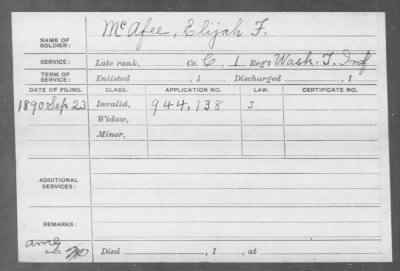 NAME OF SOLDIER: McAfee, Elijah F.
SERVICE: Late rank, Co. C, 1 Reg't Wash. T. Inf
TERM OF SERVICE: Enlisted , 1 Discharged , 1
DATE OF FILING. CLASS. APPLICATION NO. LAW. CERTIFICATE NO.
1890 Sep 23 Invalid, 944,138 J
Widow,
Minor,
ADDITIONAL SERVICES:
REMARKS:
Died , 1 , at